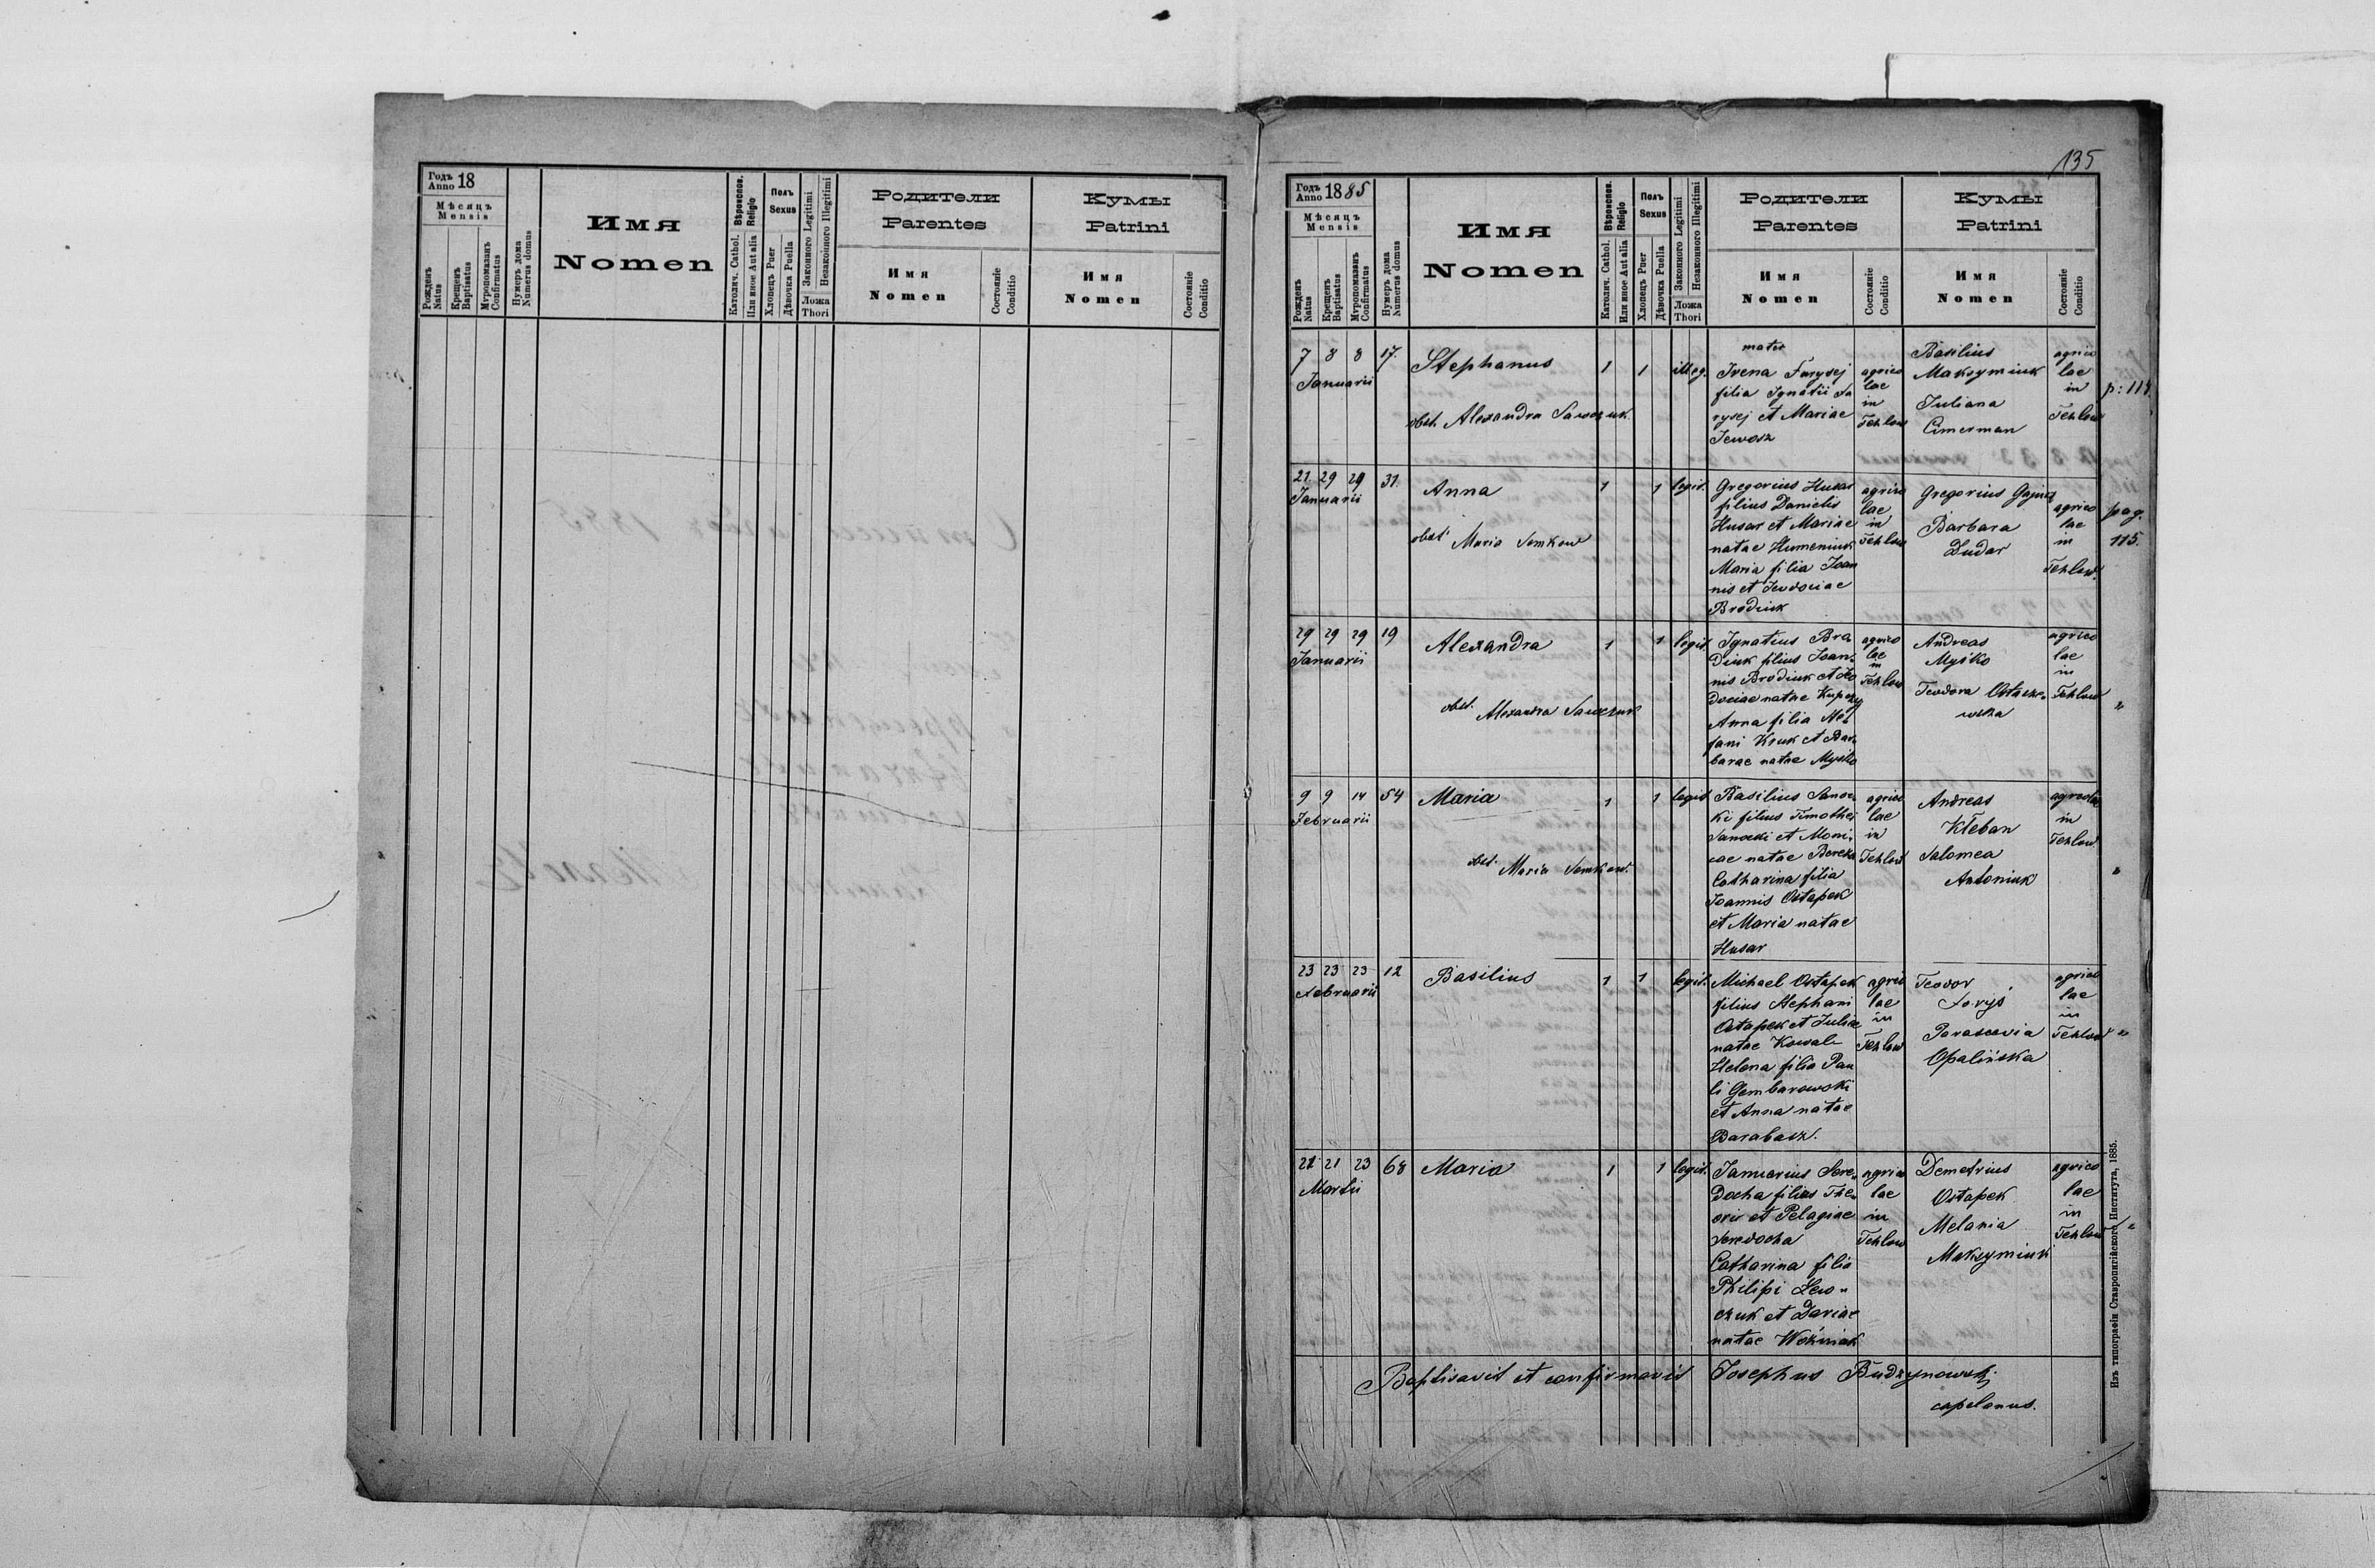 Годъ Anno 18
Мѣсяцъ Mensis
Рожденъ Natus
Крещенъ Baptisatus
Мѵропомазанъ Confirmatus
Нумеръ дома Numerus domus
Имя
Nomen
Католич. Cathol.
Или иное Aut alia
Вѣроиспов. Religio
Полъ Sexus
Хлопецъ Puer
Дѣвочка Puella
Законного Legitimi
Незаконного Illegitimi
Ложа Thori
Родители
Parentes
Имя
Nomen
Состоянiе Conditio
Кумы
Patrini
Имя
Nomen
Состоянiе Conditio
135
Годъ Anno 1885
Мѣсяцъ Mensis
Рожденъ Natus
Крещенъ Baptisatus
Мѵропомазанъ Confirmatus
Нумеръ дома Numerus domus
Имя
Nomen
Католич. Cathol.
Или иное Aut alia
Вѣроиспов. Religio
Полъ Sexus
Хлопецъ Puer
Дѣвочка Puella
Законного Legitimi
Незаконного Illegitimi
Ложа Thori
Родители
Parentes
Имя
Nomen
Состоянiе Conditio
Кумы
Patrini
Имя
Nomen
Состоянiе Conditio
7 8 8 17.
Januarii
Stephanus
obst. Alexandra Sawczuk
1 1 illeg.
mater
Irena Farysej
filia Ignatii Fa
rysej et Mariae
Jewosz
agrico
lae
in
Tehlow
Basilius
Maksymiuk
Juliana
Cimerman
agrico
lae
in
Tehlow
p: 114.
21 29 29 31.
Januarii
Anna
obst. Maria Semkow
1 1 legit.
Gregorius Husar
filius Danielis
Husar et Mariae
natae Humeniuk
Maria filia Joan
nis et Jewdociae
Brodiuk
agrico
lae
in
Tehlow
Gregorius
Barbara
Dudar
agrico
lae
in
Tehlow.
pag.
115.
29 29 29 19
Januarii
Alexandra
obst. Alexandra Sawczuk
1 1 legit.
Ignatius Bra
diuk filius Joan
nis Brodiuk et Jew
dociae natae
Anna filia Ste
fani Kruk et Bar
barae natae Myśko
agrico
lae
in
Tehlow
Andreas
Myśko
Teodora Ostasze
wska
agrico
lae
in
Tehlow
"
9 9 14 54
Februarii
Maria
obst. Maria Semkow.
1 1 legit
Basilius Sanoc
ki filius Timothei
Sanocki et Moni
cae natae Bereza
Catharina filia
Joannis Ostapek
et Maria natae
Husar
agrico
lae
in
Tehlow
Andreas
Kłeban
Salomea
Antoniuk
agricolae
in
Tehlow
"
23 23 23 12
Februarii
Basilius
1 1 legit.
Michael Ostapek
filius Stephani
Ostapek et Juliae
natae Kowal
Helena filia Pau
li Gembarowski
et Anna natae
Barabasz.
agrico
lae
in
Tehlow
Teodor
Forys
Parascevia
Opalińska
agrico
lae
in
Tehlow
"
21 21 23 68
Martii
Maria
1 1 legit.
Januarius Sere
docha filius The
oris et Pelagiae
Seredocha
Catharina filia
Philipi Lew
czuk et Dariae
natae Woźniak
agrico
lae
in
Tehlow
Demetrius
Ostapek
Melania
Maksymiuk
agrico
lae
in
Tehlow
"
Baptisavit et confirmavit Josephus Budzynowskj
capelanus.
Изъ типографiи Ставропигiйского Института, 1885.